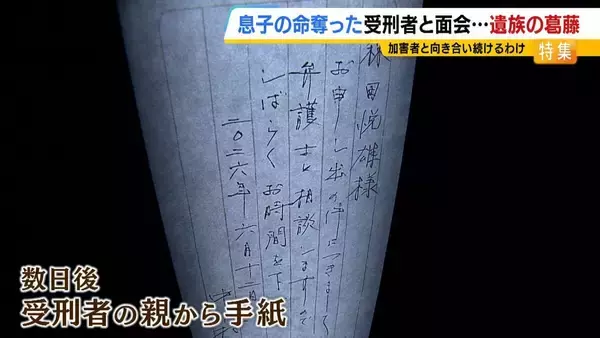 息子の命奪った受刑者と面会…遺族の葛藤
加害者と向き合い続けるわけ
特集
田悦雄様
お申し出の件につきまして
弁護士と相談しますので
しばらくお時間を下
二〇二六年 六月十
数日後
受刑者の親から手紙